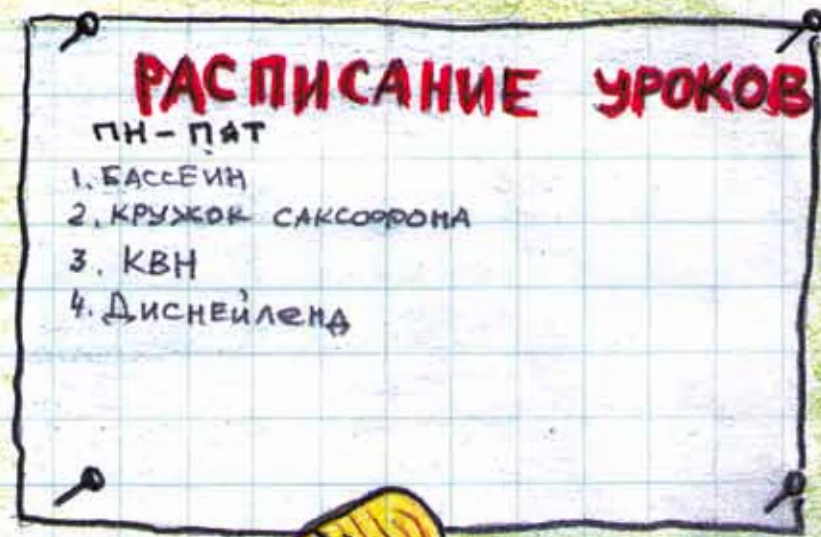 РАСПИСАНИЕ УРОКОВ
ПН-ПЯТ
1. БАССЕЙН
2. КРУЖОК САКСОФОНА
3. КВН
4. ДИСНЕЙЛЕНД